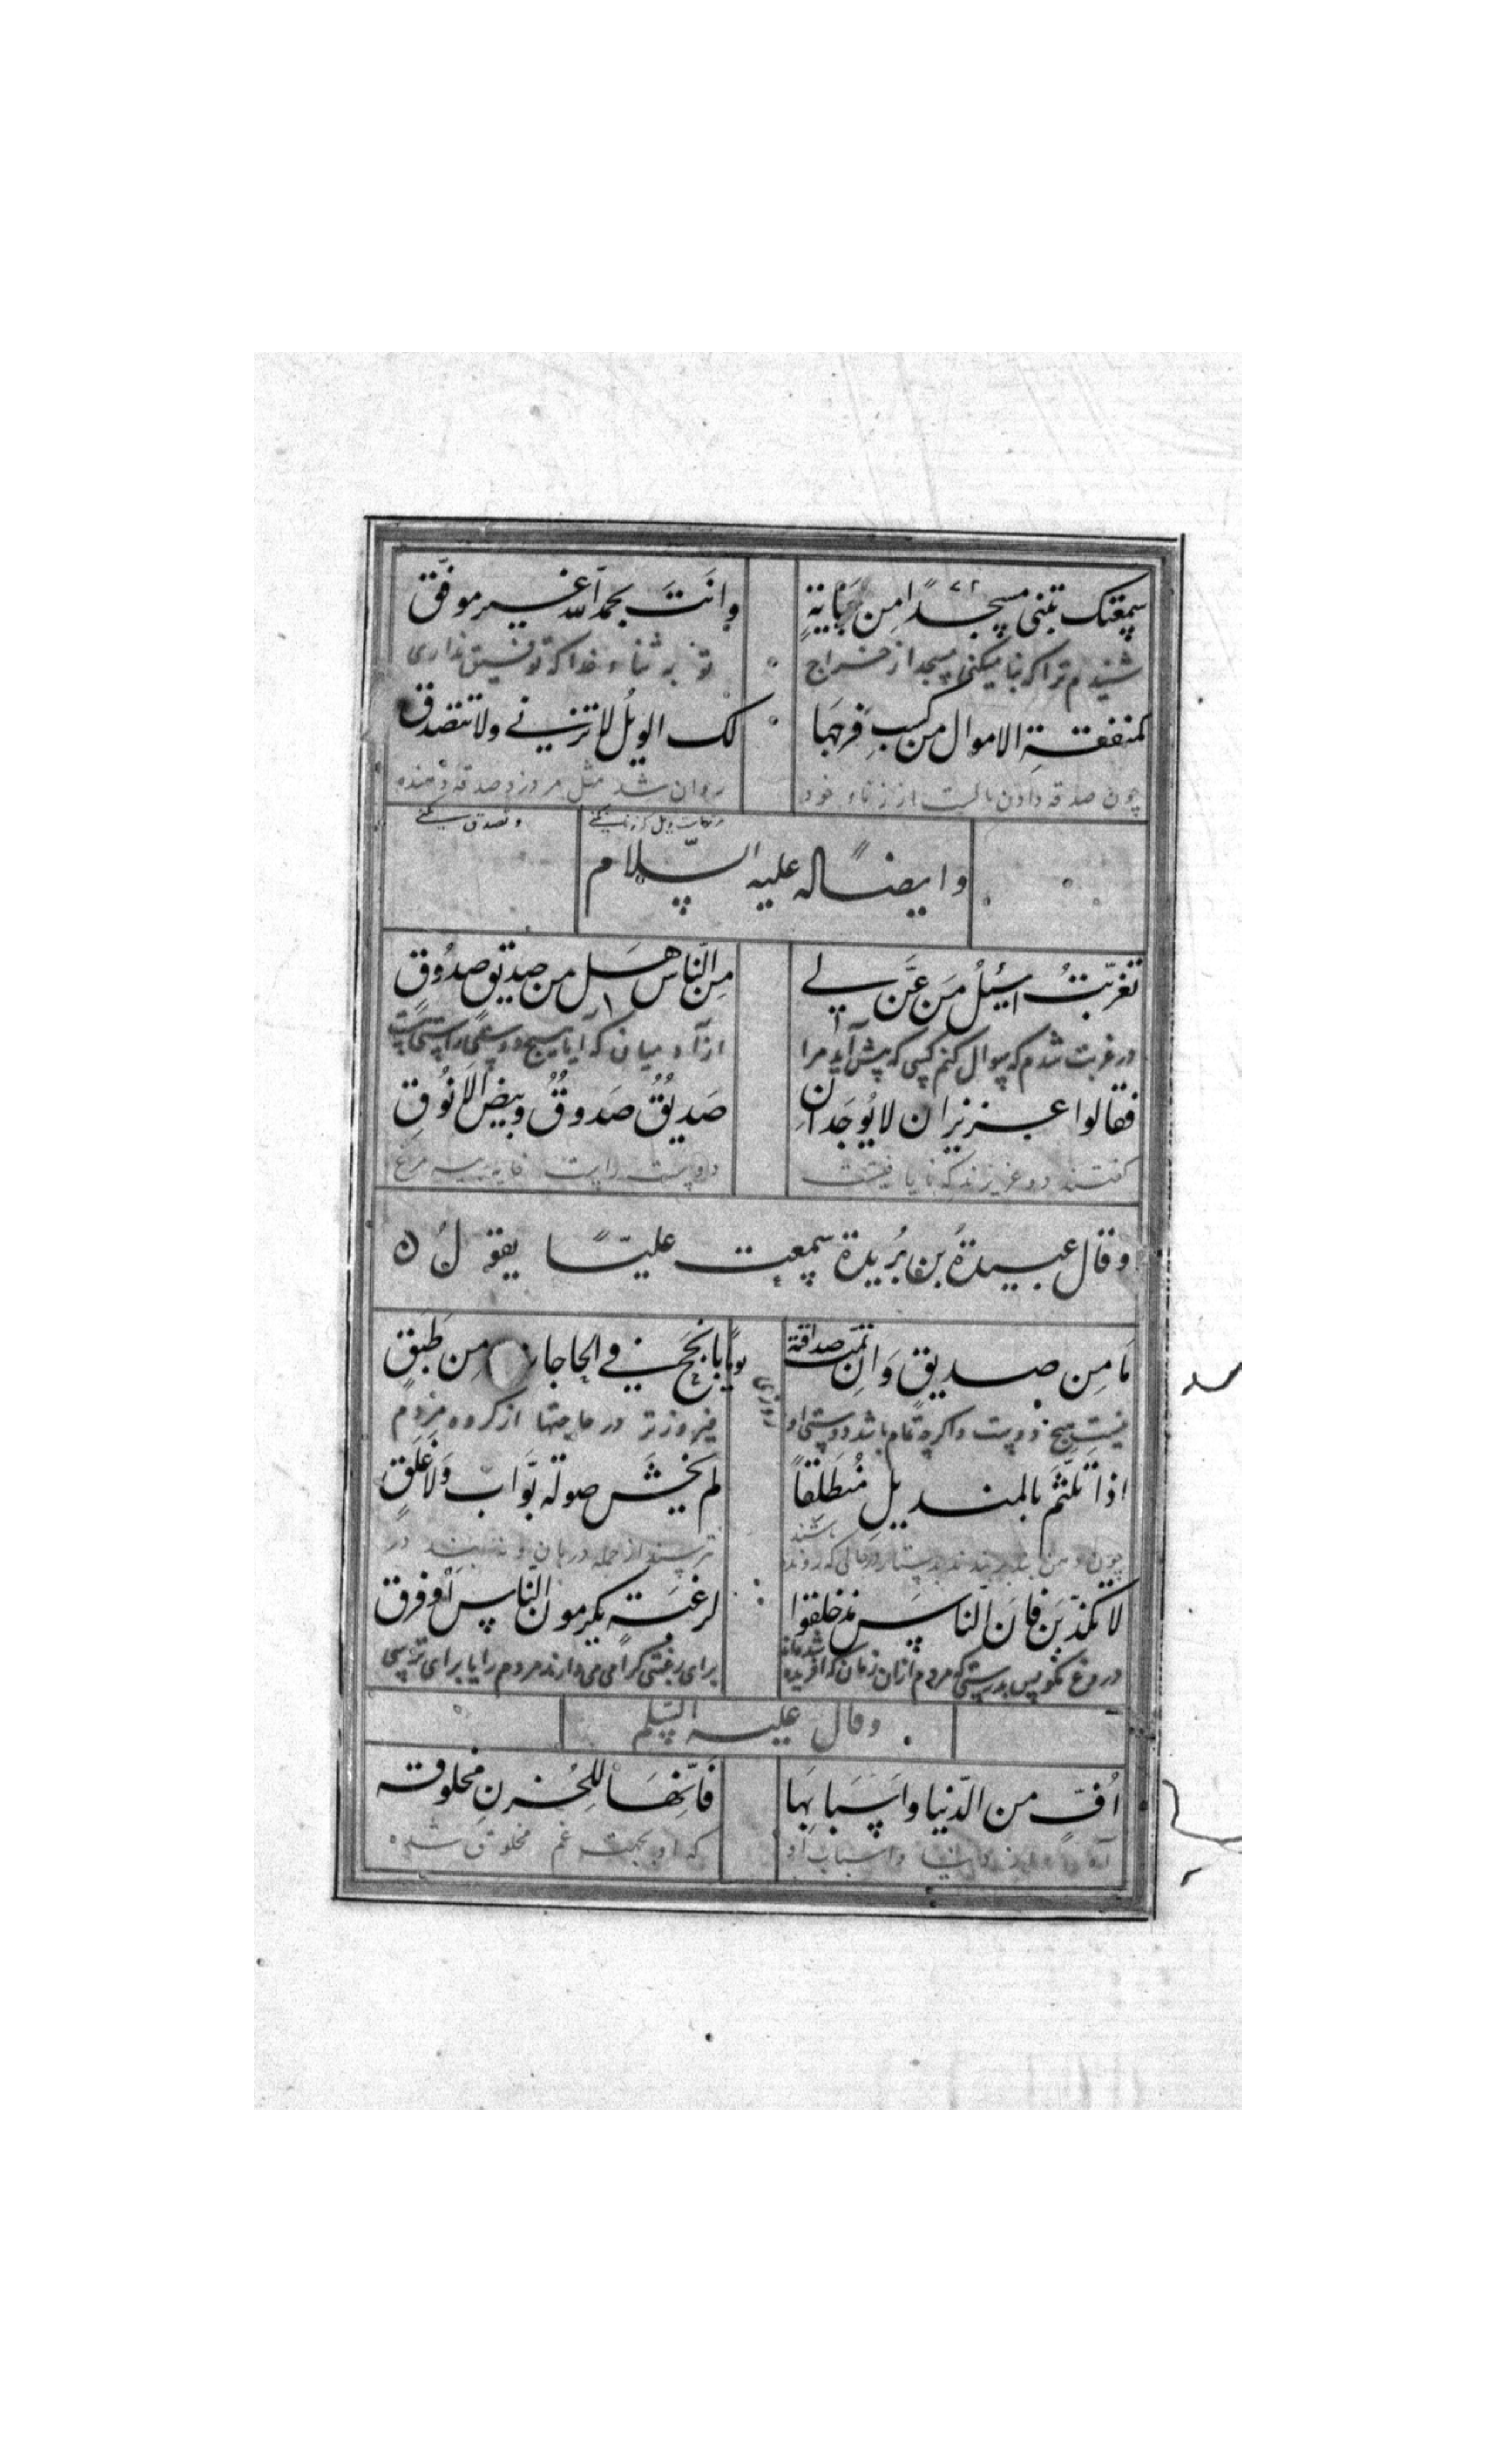 سمعتک تبنی مسجدًا من جبایةٍ وانتَ بحمد الله غیر موفّق
شنیدم ترا که بنا میکنی مسجد از خراج تو به ثناء خدا که توفیق نداری
کمنفقةِ الاموال من کسبِ فرجها لک الویلُ لا تزنی ولا تتصدق
چون صدقه دادن از زناء خود روان شد مثل مر و صدقه دهنده
و تصدق میکنے
وایضًا له علیه السّلام
تغرّبتُ اسئلُ مَن عَنَّ لی مِن النّاس هل من صدیقٍ صدُوقٍ
در غربت شدم که سوال کنم کسی که پیش آید مرا از آدمیان که آیا هیچ دوستی راستی است
فقالوا عزیزان لا یُوجَدانِ صَدیقٌ صَدوقٌ وبیض الانُوقِ
گفتند دو عزیزند که نا یافتست دوست راست خایه مرغ
وقال عبیدةُ بن بُریدة سمعت علیًّا یقول
مَا مِن صدیقٍ وَاِن تمّت صداقته یومًا بانجحَ فی الحاجات مِن طَبَقٍ
نیست هیچ دوست و اگرچه تمام باشد دوستی او روزی فیروزتر در حاجتها از گروه مردم
اذا تلثّمَ بالمندیلِ مُنطَلقاً لم یخشَ صولة بوّاب وَلا غَلَقٍ
باشند
ترسند از حمله دربان و نه بند در
لا تکذّبَن فانَ النّاسَ مذ خلقوا لرغبَة یکرمون النّاس اَو فرق
دروغ مگو پس بدرستی که مردم ازان زمان که آفریده شده‌اند برای رغبتی گرامی میدارند مردم را یا برای ترسی
وقال علیه السّلم
اُفٍّ من الدّنیا واَسبابِهَا فَاِنّهَا لِلحُزنِ مخلوقه
آه از دنیا و اسباب او که او بجهت غم مخلوق شده